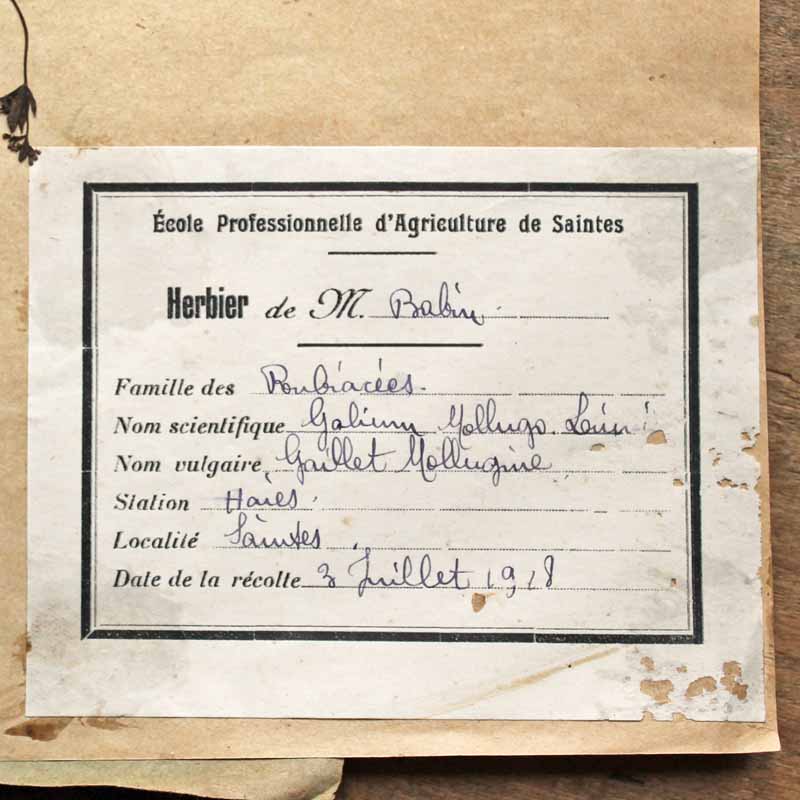 École Professionnelle d'Agriculture de Saintes
Herbier de M. Babin
Famille des Roubiacées.
Nom scientifique Galium Mollugo
Nom vulgaire Gaillet Mollugine
Station Haies.
Localité Saintes
Date de la récolte 3 Juillet 1918